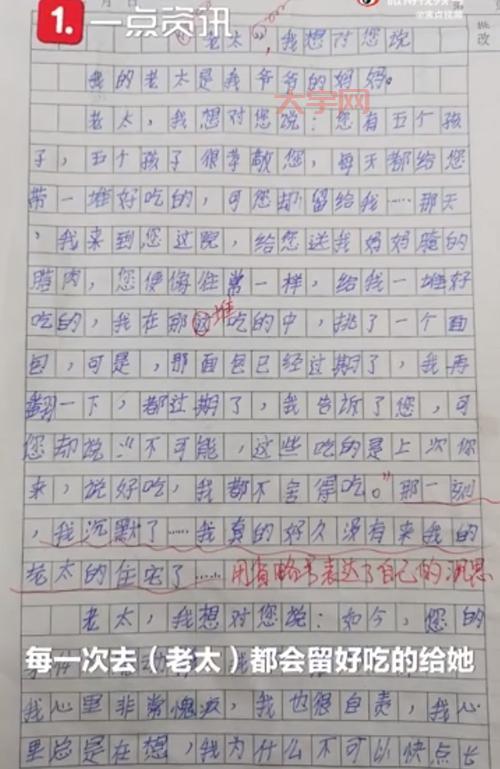 1. 一点资讯
老太，我想对您说
批改
我的老太是我爷爷的妈妈。
大字网
老太，我想对您说：您有五个孩
子，五个孩子很孝敬您，每天都给您
带一堆好吃的，可您却留给我……那天
，我来到您这院，给您送我妈妈腌的
腊肉，您便像往常一样，给我一堆好
吃的，我在那堆吃的中，挑了一个面
包，可是，那面包已经过期了，我再
翻一下，都过期了，我告诉了您，可
您却说："不可能，这些吃的是上次你
来，说好吃，我都不舍得吃。"那一刻
，我沉默了……我真的好久没有来我的
老太的住宅了……用省略号表达了自己的沉思
老太，我想对您说：如今，您的
每一次去（老太）都会留好吃的给她
我心里非常愧疚，我也很自责，我心
里总是在想，我为什么不可以快点长